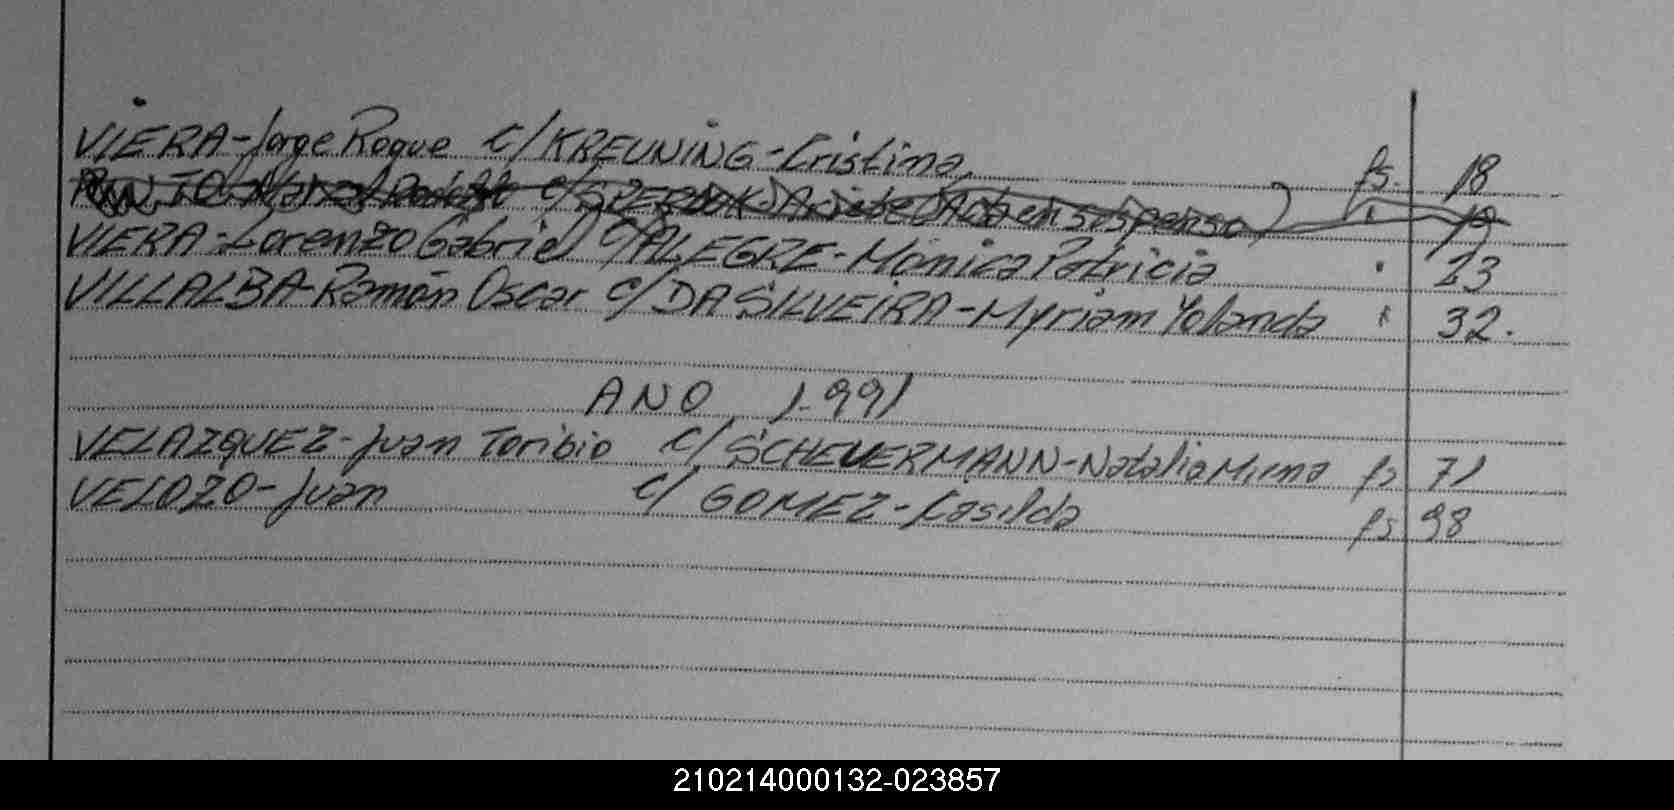 VIERA-Jorge Roque c/ KREUNING-Cristina, fs. 18
c/ Acta en suspenso) " 19
VIERA-Lorenzo Gabriel c/ ALEGRE-Mónica Patricia " 23
VILLALBA-Ramón Oscar c/ DA SILVEIRA-Myriam Yolanda " 32.
AÑO 1.991
VELAZQUEZ-Juan Toribio c/ SCHEUERMANN-Natalia Mirna fs 71
VELOZO-Juan c/ GOMEZ-Casilda fs 98
210214000132-023857